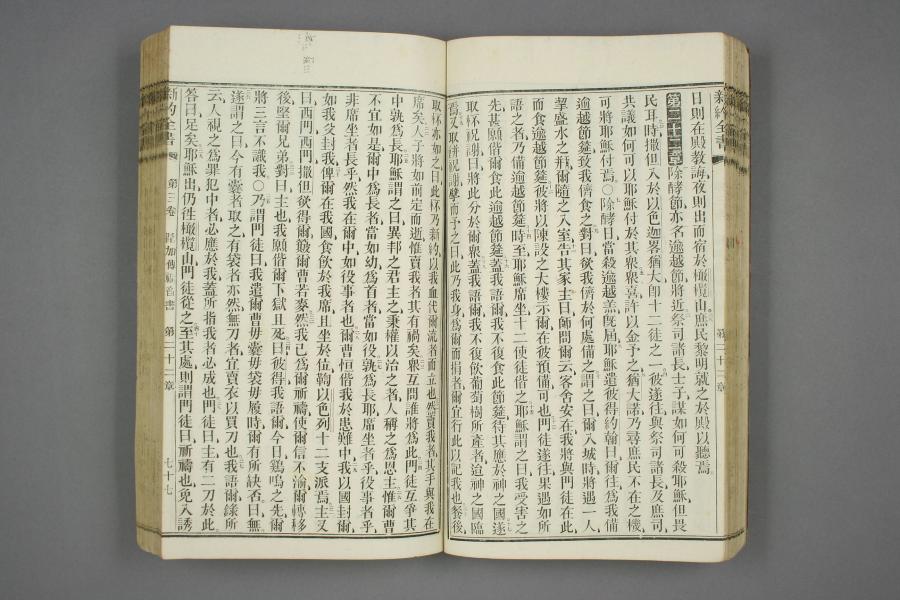 新約全書
第二十二章
日則在殿教誨夜則出而宿於橄欖山庶民黎明就之於殿以聽焉
第二十二章 除酵節亦名逾越節將近祭司諸長士子謀如何可殺耶穌但畏
民耳時撒但入於以色迦畧猶大卽十二徒之一彼遂往與祭司諸長及庶司
共議如何可以耶穌付於其衆衆喜許以金予之猶大諾乃尋庶民不在之機
可將耶穌付焉〇除酵日當殺逾越羔旣屆耶穌遣彼得約翰曰爾往爲我備
逾越節筵致我儕食之對曰欲我儕於何處備之謂之曰爾入城時將遇一人
挈盛水之瓶爾隨之入室告其家主曰師問爾云客舍安在我將與門徒在此
而食逾越節筵彼將以陳設之大樓示爾在彼預備可也門徒遂往果遇如所
語之者乃備逾越節筵時至耶穌席坐十二使徒偕之耶穌謂之曰我受害之
先甚願偕爾食此逾越節筵蓋我語爾我不復食此節筵待其應於神之國遂
取杯祝謝曰將此分於爾衆蓋我語爾我不復飲葡萄樹所產者迨神之國臨
焉又取餅祝謝擘而予之曰此乃我身爲爾而捐者爾宜行此以記我也餐後
取杯亦如之曰此杯乃新約以我血代爾流者而立也然賣我者其手與我在
席矣人子將如前定而逝惟賣我者其有禍矣衆互問誰將爲此門徒互爭其
中孰爲長耶穌謂之曰異邦之君主之秉權以治之者人稱之爲恩主惟爾曹
不宜如是爾中爲長者當如幼爲首者當如役孰爲長耶席坐者乎役事者乎
非席坐者長乎然我在爾中如役事者也爾曹恒偕我於患難中我以國封爾
如我父封我俾爾在我國食飲於我席且坐於位鞫以色列十二支派焉主又
曰西門西門撒但欲得爾簸爾曹若麥然我已爲爾祈禱使爾信不渝爾轉移
後堅爾兄弟對曰主也我願偕爾下獄且死曰彼得我語爾今日鷄鳴之先爾
將三言不識我〇乃謂門徒曰我遣爾曹毋囊毋袋毋履時爾有所缺否曰無
遂謂之曰今有囊者取之有袋者亦然無刀者宜賣衣以買刀也我語爾錄所
云人視之爲罪犯中者必應於我蓋所指我者必成也門徒曰主有二刀於此
答曰足矣耶穌出仍往橄欖山門徒從之至其處則謂門徒曰祈禱也免入誘
新約全書
第三卷
路加傳福音書
第二十二章
七十七